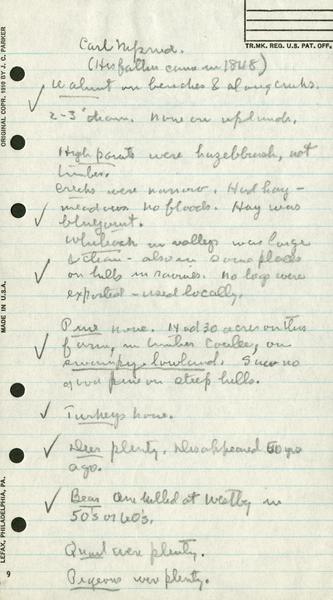 TR. MK. REG. U.S. PAT. OFF.
ORIGINAL COPR. 1910 BY J. C. PARKER
MADE IN U.S.A.
LEFAX, PHILADELPHIA, PA.
Carl
(His father came in 1848)
Walnut on benches & along creeks.
2-3' diam. None on uplands.
High points were hazelbrush, not
timber.
Creeks were narrow. Had hay-
meadows no floods. Hay was
bluejoint.
White oak in valleys was large
& clean - also in some places
on hills in ravines. No logs were
exported - used locally.
Pine none. 14 ad 30 acres on this
farm, in Timber Coulee, on
swampy lowland. Saw no
pine on steep hills.
Turkeys none.
Deer plenty. Disappeared 50 yrs
ago.
Bear one killed at Westby in
50's or 60's.
Quail were plenty.
Pigeons were plenty.
9